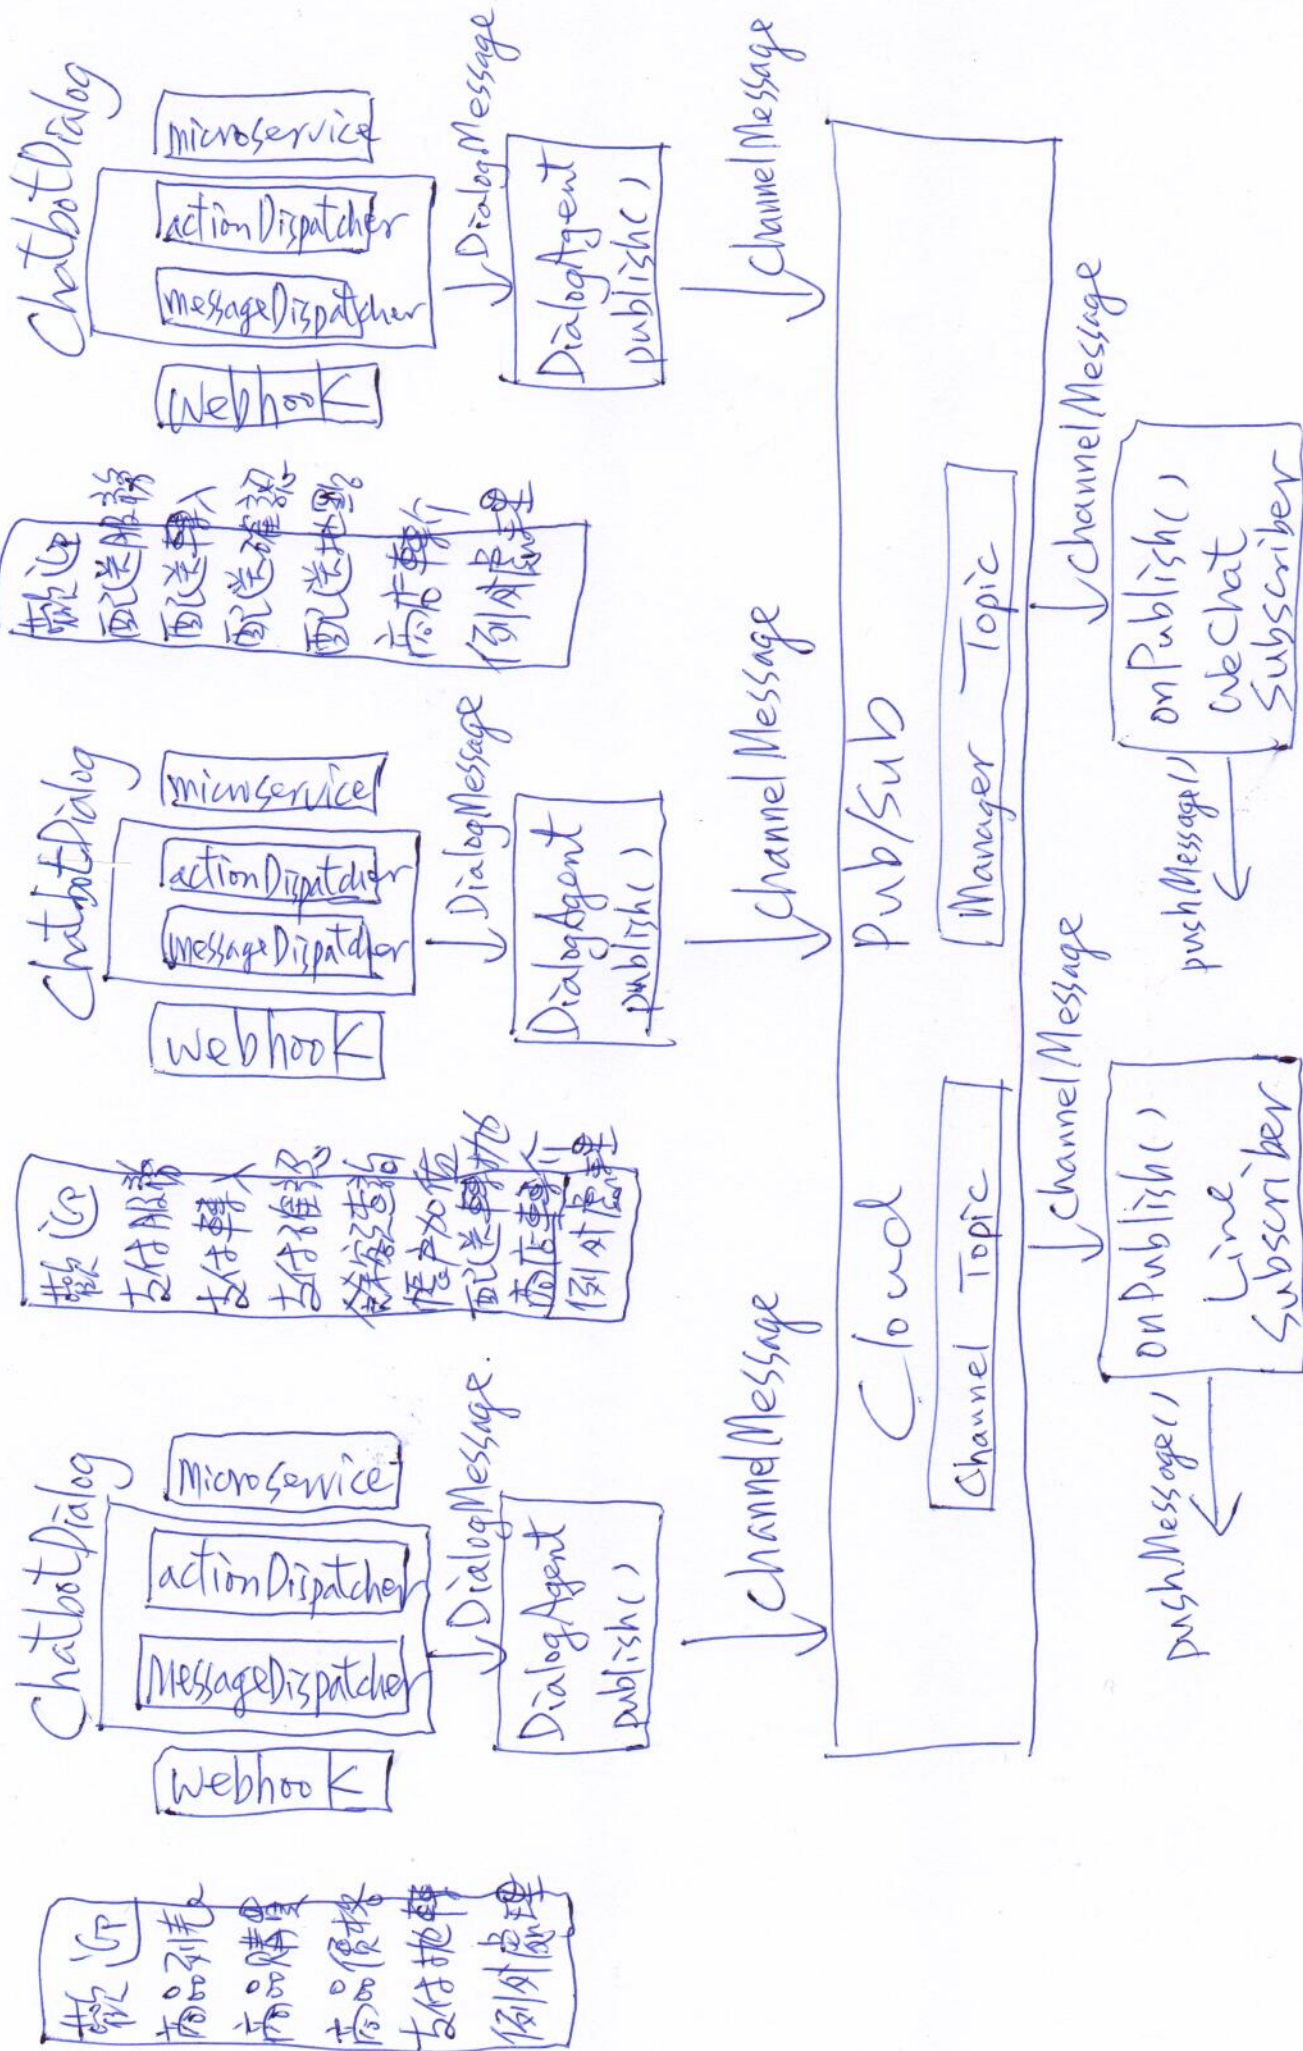 歡迎
商品列表
商品購買
商品優惠
支付拋轉
例外處理
ChatbotDialog
webhook
MessageDispatcher
actionDispatcher
microservice
DialogMessage
DialogAgent
publish()
ChannelMessage
歡迎
支付服務
支付轉入
支付確認
餘額查詢
帳戶加值
配送轉拋
商店轉介
例外處理
ChatbotDialog
webhook
messageDispatcher
actionDispatcher
microservice
DialogMessage
DialogAgent
publish()
ChannelMessage
歡迎
配送服務
配送轉入
配送確認
配送地點
商店轉介
例外處理
ChatbotDialog
webhook
messageDispatcher
actionDispatcher
microservice
DialogMessage
DialogAgent
publish()
ChannelMessage
Cloud Pub/Sub
Channel Topic
Manager Topic
ChannelMessage
onPublish()
Line
Subscriber
pushMessage()
channelMessage
onPublish()
WeChat
Subscriber
pushMessage()